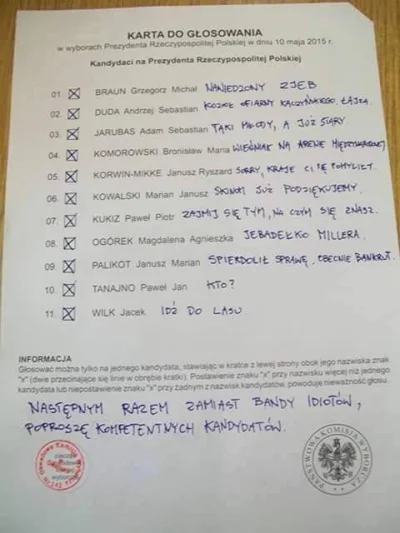 KARTA DO GŁOSOWANIA
w wyborach Prezydenta Rzeczypospolitej Polskiej w dniu 10 maja 2015 r.
Kandydaci na Prezydenta Rzeczypospolitej Polskiej
01. BRAUN Grzegorz Michał NAWIEDZONY ZJEB
02. DUDA Andrzej Sebastian KOZIOŁ OFIARNY KACZYŃSKIEGO.
03. JARUBAS Adam Sebastian TAKI MŁODY, A JUŻ STARY
04. KOMOROWSKI Bronisław Maria WIEŚNIAK NA ARENIE
05. KORWIN-MIKKE Janusz Ryszard SORRY, KRAJE CI SIĘ POMYLIŁY
06. KOWALSKI Marian Janusz SKINOM JUŻ PODZIĘKUJEMY.
07. KUKIZ Paweł Piotr ZAJMIJ SIĘ TYM, NA CZYM SIĘ ZNASZ.
08. OGÓREK Magdalena Agnieszka JEBADEŁKO MILLERA.
09. PALIKOT Janusz Marian SPIERDOLIŁ SPRAWĘ. OBECNIE BANKRUT.
10. TANAJNO Paweł Jan KTO?
11. WILK Jacek IDŹ DO LASU
INFORMACJA
Głosować można tylko na jednego kandydata, stawiając w kratce z lewej strony obok jego nazwiska znak
"x" (dwie przecinające się linie w obrębie kratki). Postawienie znaku "x" przy nazwisku więcej niż jednego
kandydata lub niepostawienie znaku "x" przy żadnym z nazwisk kandydatów, powoduje nieważność głosu.
NASTĘPNYM RAZEM ZAMIAST BANDY IDIOTÓW,
POPROSZĘ KOMPETENTNYCH KANDYDATÓW.
PAŃSTWOWA KOMISJA WYBORCZA